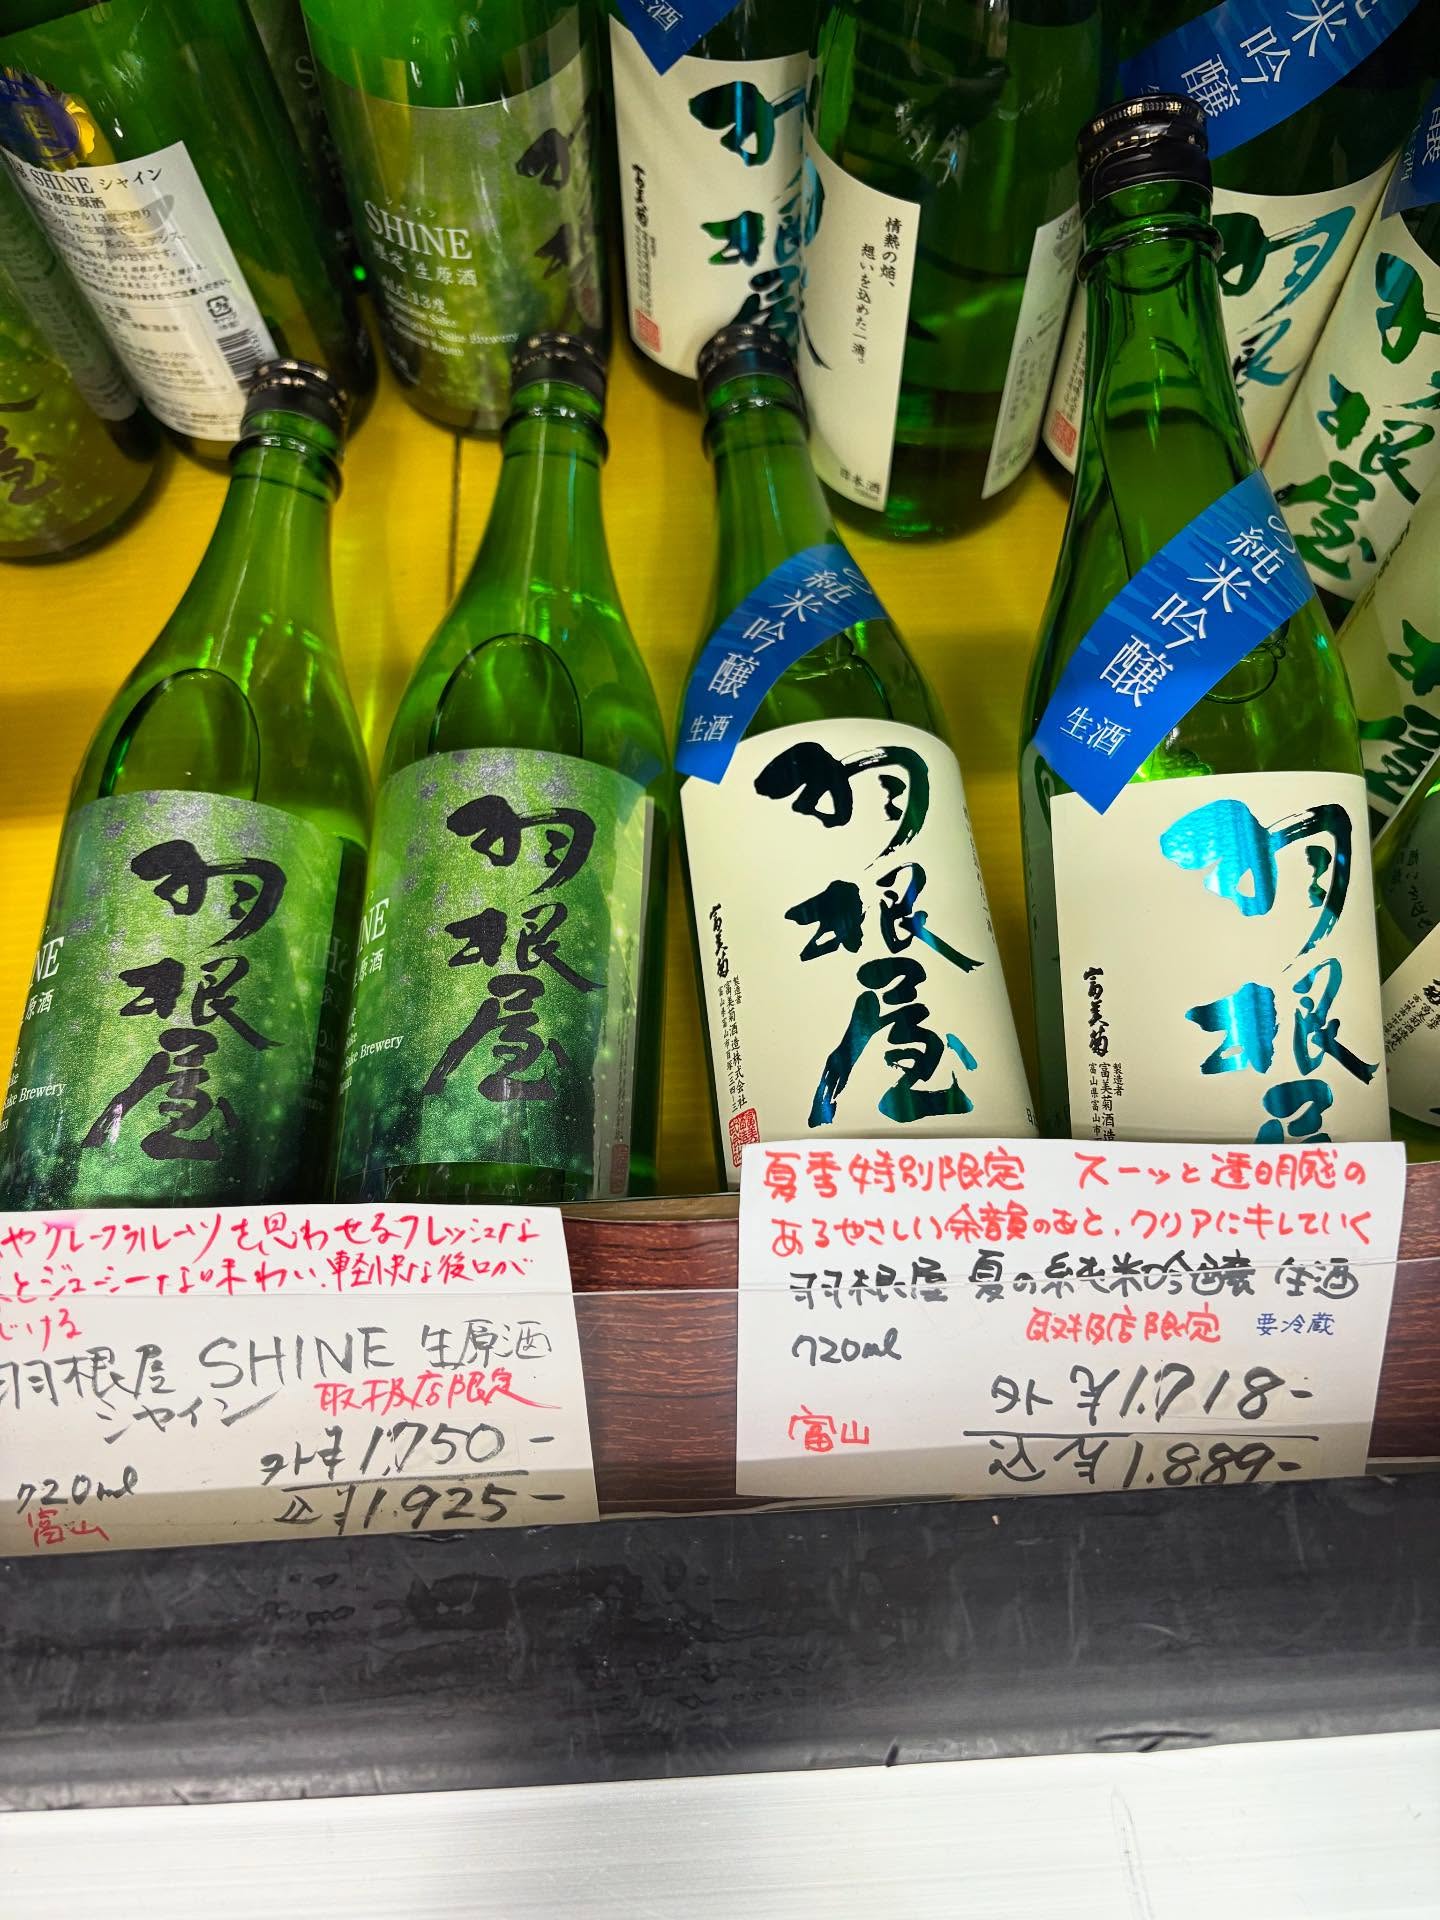 SHINE シャイン
13度生原酒
シャイン
SHINE
限定 生原酒
ALC.13度
羽根屋
富美菊
情熱の焔、
想いを込めた一滴。
日本酒
純米吟醸
羽根屋
羽根屋
羽根屋
羽根屋
Sake Brewery
羽根屋
Sake Brewery
の純米吟醸
生酒
羽根屋
富美菊
製造者
富美菊酒造株式会社
富山県富山市百塚一三四-三
の純米吟醸
生酒
羽根屋
富美菊
製造者
富美菊酒造
富山県富山市
やグレープフルーツを思わせるフレッシュな
とジューシーな味わい、軽快な後口が
ける
羽根屋 SHINE 生原酒
シャイン 取扱店限定
外¥1,750-
720ml
込¥1,925-
富山
夏季特別限定 スーッと透明感の
あるやさしい余韻のあと、クリアにキレていく
羽根屋 夏の純米吟醸 生酒
取扱店限定 要冷蔵
720ml
外¥1,718-
富山
込¥1,889-